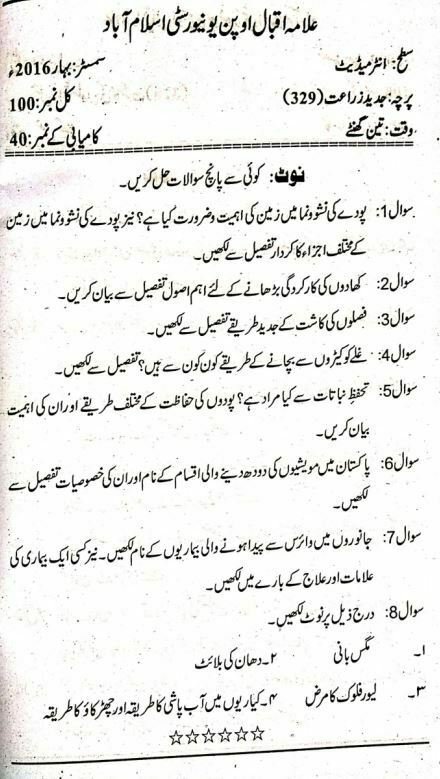 علامہ اقبال اوپن یونیورسٹی اسلام آباد
سطح: انٹرمیڈیٹ سمسٹر: بہار 2016ء
پرچہ: جدید زراعت (329) کل نمبر: 100
وقت: تین گھنٹے کامیابی کے نمبر: 40
نوٹ: کوئی سے پانچ سوالات حل کریں۔
سوال 1: پودے کی نشوونما میں زمین کی اہمیت و ضرورت کیا ہے؟ نیز پودے کی نشوونما میں زمین
کے مختلف اجزاء کا کردار تفصیل سے لکھیں۔
سوال 2: کھادوں کی کارکردگی بڑھانے کے لئے اہم اصول تفصیل سے بیان کریں۔
سوال 3: فصلوں کی کاشت کے جدید طریقے تفصیل سے لکھیں۔
سوال 4: غلے کو کیڑوں سے بچانے کے طریقے کون کون سے ہیں؟ تفصیل سے لکھیں۔
سوال 5: تحفظ نباتات سے کیا مراد ہے؟ پودوں کی حفاظت کے مختلف طریقے اور ان کی اہمیت
بیان کریں۔
سوال 6: پاکستان میں مویشیوں کی دودھ دینے والی اقسام کے نام اور ان کی خصوصیات تفصیل سے
لکھیں۔
سوال 7: جانوروں میں وائرس سے پیدا ہونے والی بیماریوں کے نام لکھیں۔ نیز کسی ایک بیماری کی
علامات اور علاج کے بارے میں لکھیں۔
سوال 8: درج ذیل پر نوٹ لکھیں۔
۱۔ مگس بانی ۲۔ دھان کی بلائٹ
۳۔ لیور فلوک کا مرض ۴۔ کیاریوں میں آب پاشی کا طریقہ اور چھڑکاؤ کا طریقہ
☆☆☆☆☆☆